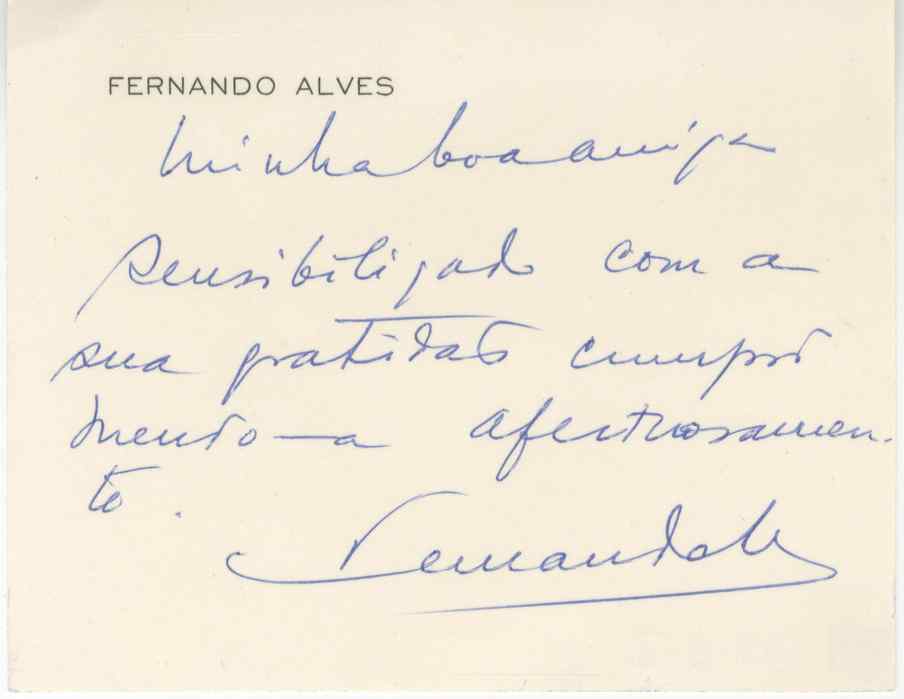 FERNANDO ALVES
Minha boa amiga
Sensibilizado com a
sua gratidão cumpri
mento-a afectuosamen-
te.